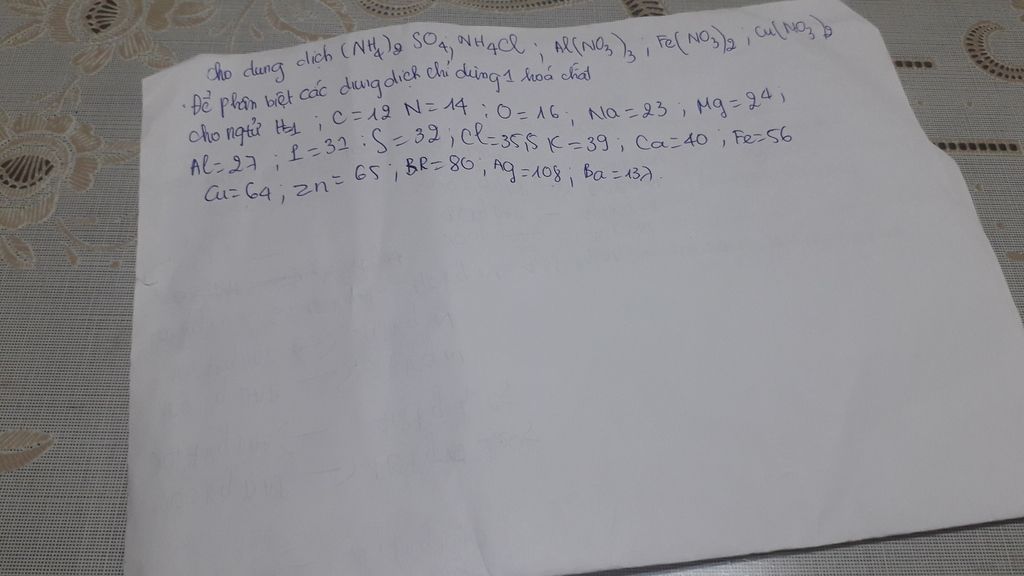 cho dung dịch (NH4)2 SO4; NH4Cl ; Al(NO3)3 ; Fe(NO3)2 ; Cu(NO3)2
. Để phân biệt các dung dịch chỉ dùng 1 hoá chất
cho ngtử H=1 ; C=12 N=14 ; O=16 ; Na=23 ; Mg=24 ;
Al=27 ; P=31 ; S=32 ; Cl=35,5 K=39 ; Ca=40 ; Fe=56
Cu=64 ; Zn=65 ; BR=80 ; Ag=108 ; Ba=137.